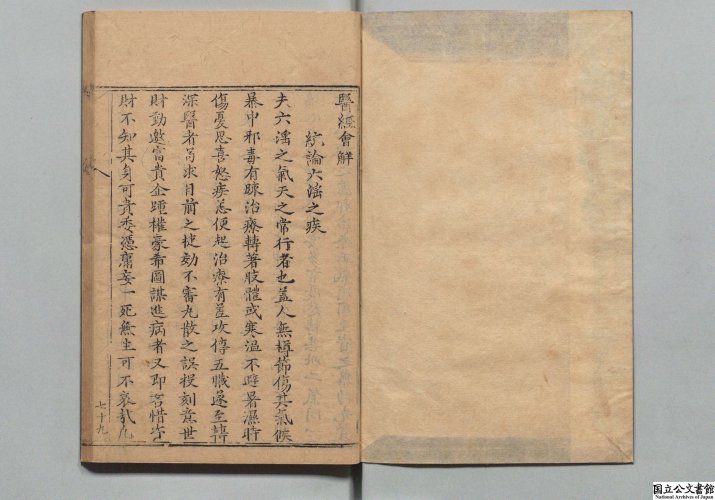 醫經會解
統論六淫之疾
夫六淫之氣天之常行者也蓋人無樽節傷其氣候
暴中邪毒有踈治療轉著肢體或寒溫不避暑濕時
傷憂思喜怒疾恙便起治療有差攻傳五臟遂至
深醫者苟求目前之捷効不審九散之誤投刻意世
財勤邀富貴企踵權豪希圖謀進病者又即吝惜
財不知其身可貴委憑庸妄一死無生可不哀哉凡
七十九
国立公文書館
National Archives of Japan